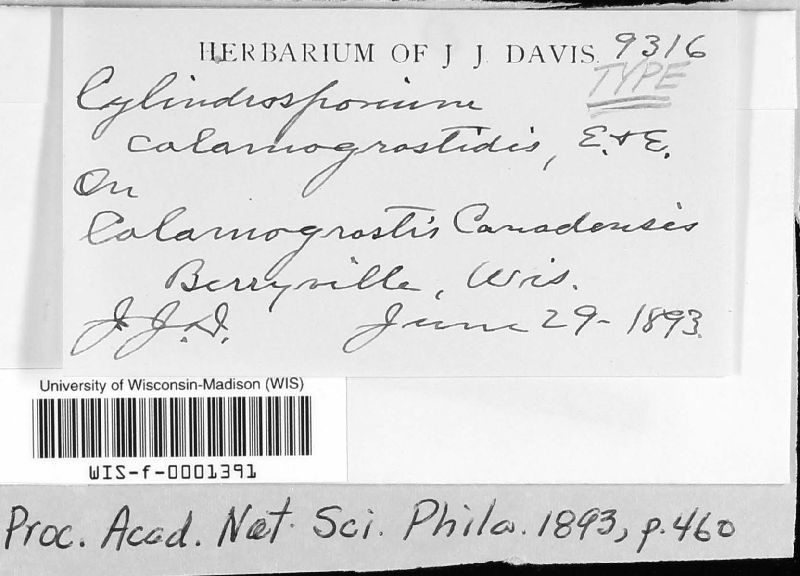 HERBARIUM OF J J DAVIS. 9316
TYPE
Cylindrosporium
calamogrostidis, E. & E.
On
Calamogrostis Canadensis
Berryville, Wis.
J. J. D. June 29- 1893.
University of Wisconsin-Madison (WIS)
WIS-f-0001391
Proc. Acad. Nat. Sci. Phila. 1893, p. 460